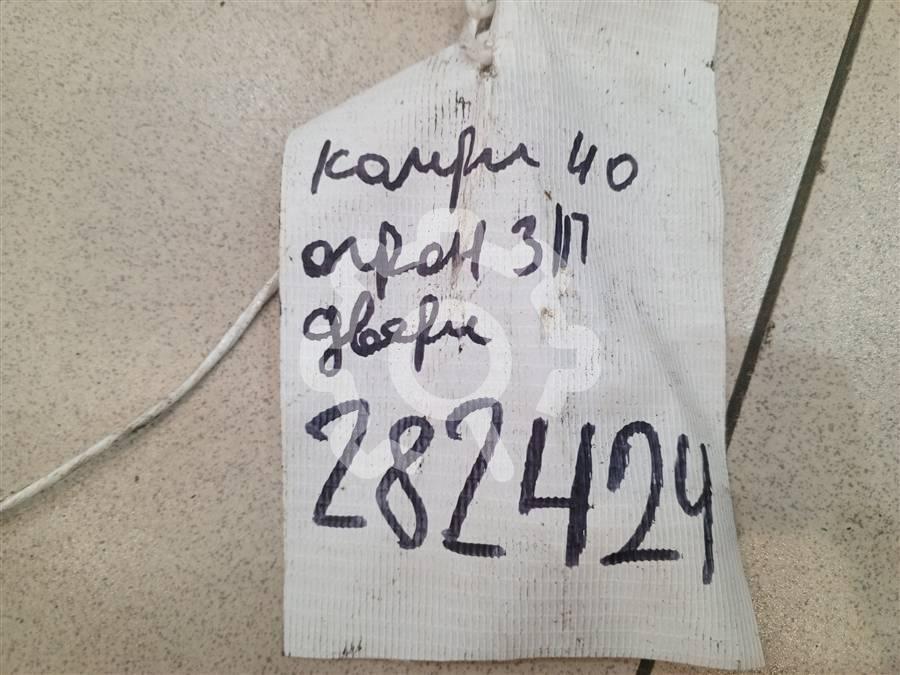 камри 40
огран З/П
двери
282424